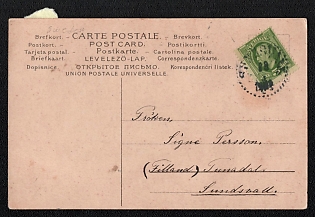 Brefkort. CARTE POSTALE. Brevkort.
Postkort. POST CARD. Postikortti.
Tarjeta postal. Postkarte Cartolina postale.
Briefkaart. LEVELEZŐ-LAP. Correspondenzkarte.
Dopisnice. ОТКРЫТОЕ ПИСЬМО. Korespondenční lístek.
UNION POSTALE UNIVERSELLE.
Fröken
Signe Persson.
(Filland) Tunadal.
Sundsvall.